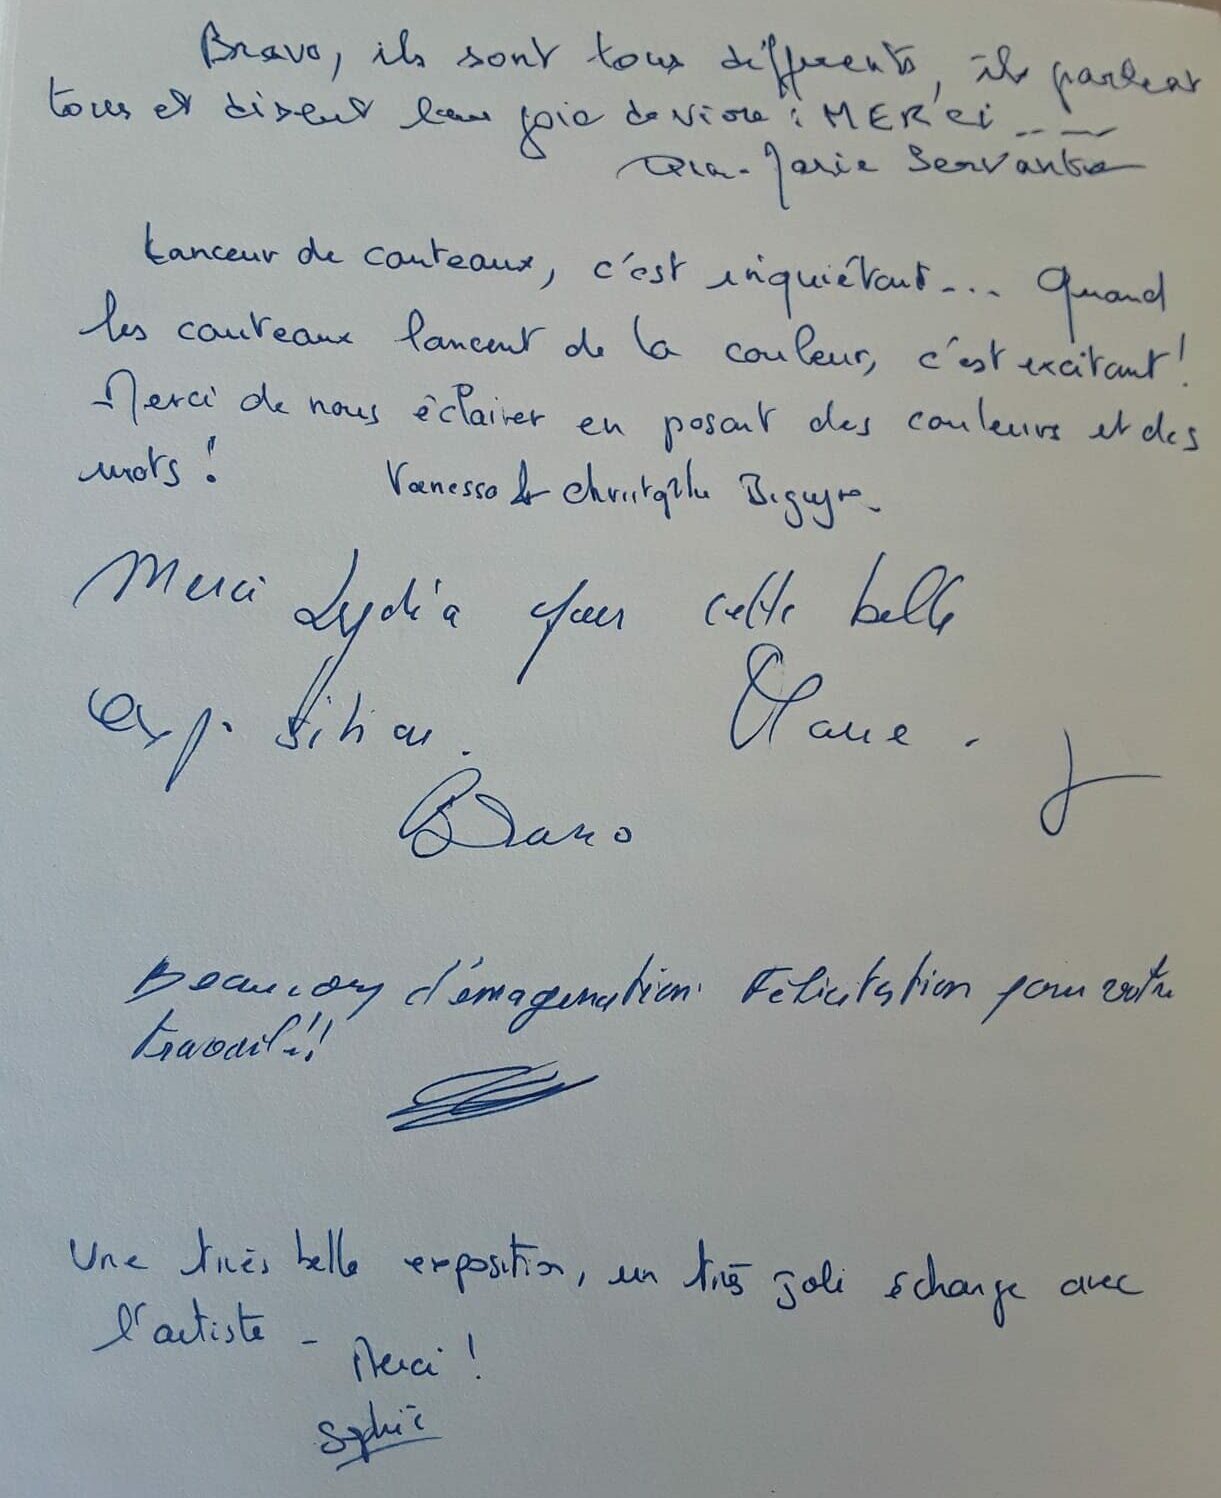 Bravo, ils sont tous différents, ils parlent
tous et disent leur joie de vivre : MERCI ...
Marie Servant
Lanceur de couteaux, c'est inquiétant... Quand
les couteaux lancent de la couleur, c'est excitant !
Merci de nous éclairer en posant des couleurs et des
mots ! Vanessa & Christophe
Merci Lydia pour cette belle
exposition.
Bravo
Beaucoup d'émagination. Félicitation pour votre
travail !!
Une très belle exposition, un très joli échange avec
l'artiste -
Merci !
Sophie